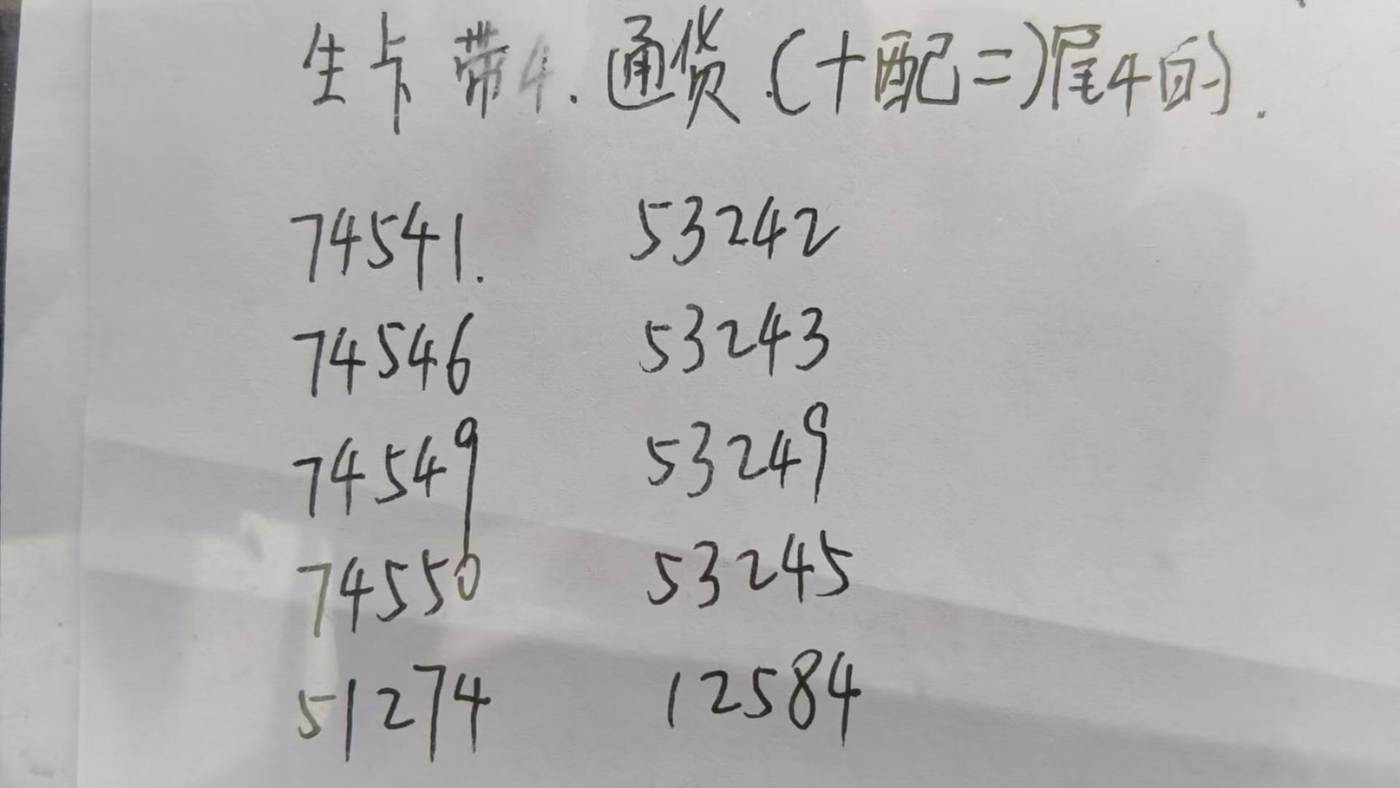 生卡带4.通货.(十配二)尾4的.
74541. 53242
74546 53243
74549 53249
74550 53245
51274 12584